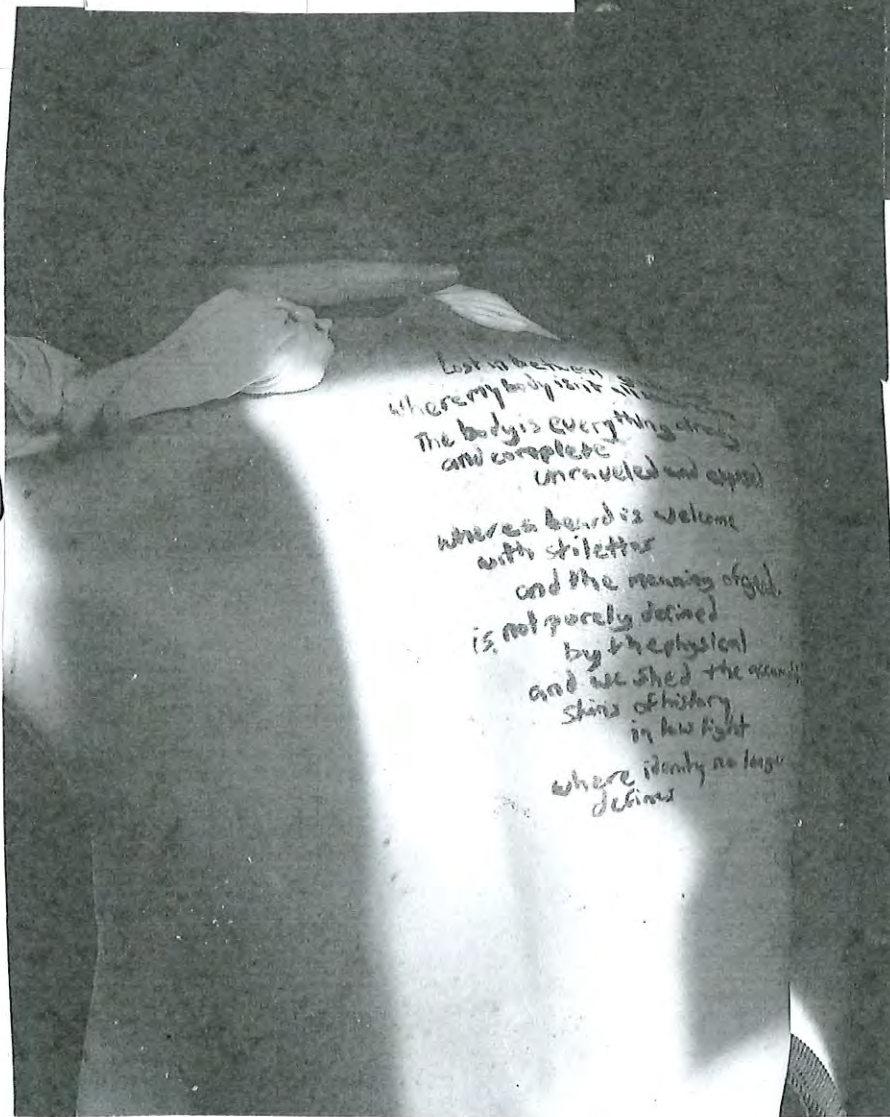 Lost in between
where my body isn't
The body is everything
and complete
unraveled and exposed
where a beard is welcome
with stilettos
and the meaning of
is not purely defined
by the physical
and we shed the
skins of history
in low light
where identity no longer
defines